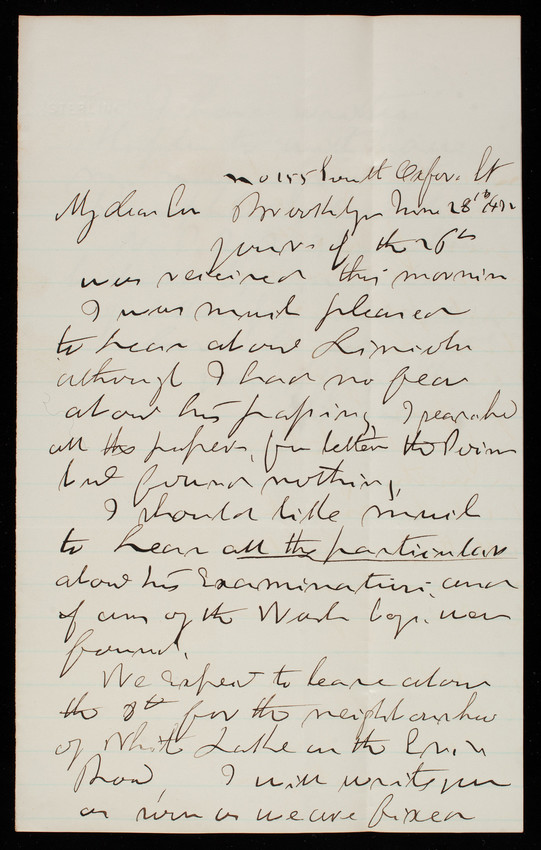 No 155 South Oxford St
My dear Son Brooklyn June 28th
yours of the 26th
was received this morning
I was much pleased
to hear about Lincoln
although I had no fear
about his passing, I searched
all the papers, for letter the
but found nothing,
I should like much
to hear all the particulars
about his Examination, and
if any of the Wash boys were
found.
We expect to leave about
the 8th for the neighborhood
of White Lake on the Erie
Road, I will write you
as soon as we are fixed